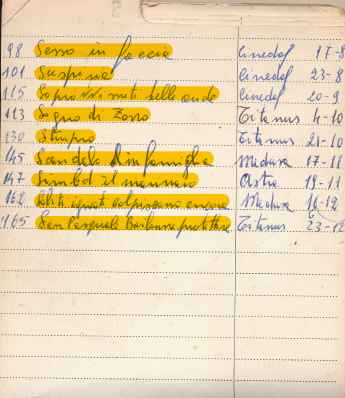 98 Sesso in faccia Cinedaf 17-8
101 Suspiria Cinedaf 23-8
115 Sopravvissuti delle ande Cinedaf 20-9
123 Sogno di Zorro Titanus 4-10
130 Stupro Titanus 21-10
145 Scandalo in famiglia Medusa 17-11
147 Simbad il marinaio Astra 19-11
162 ignoti colpiscono ancora Medusa 16-12
165 San Pasquale Bailonne protettore Titanus 23-12